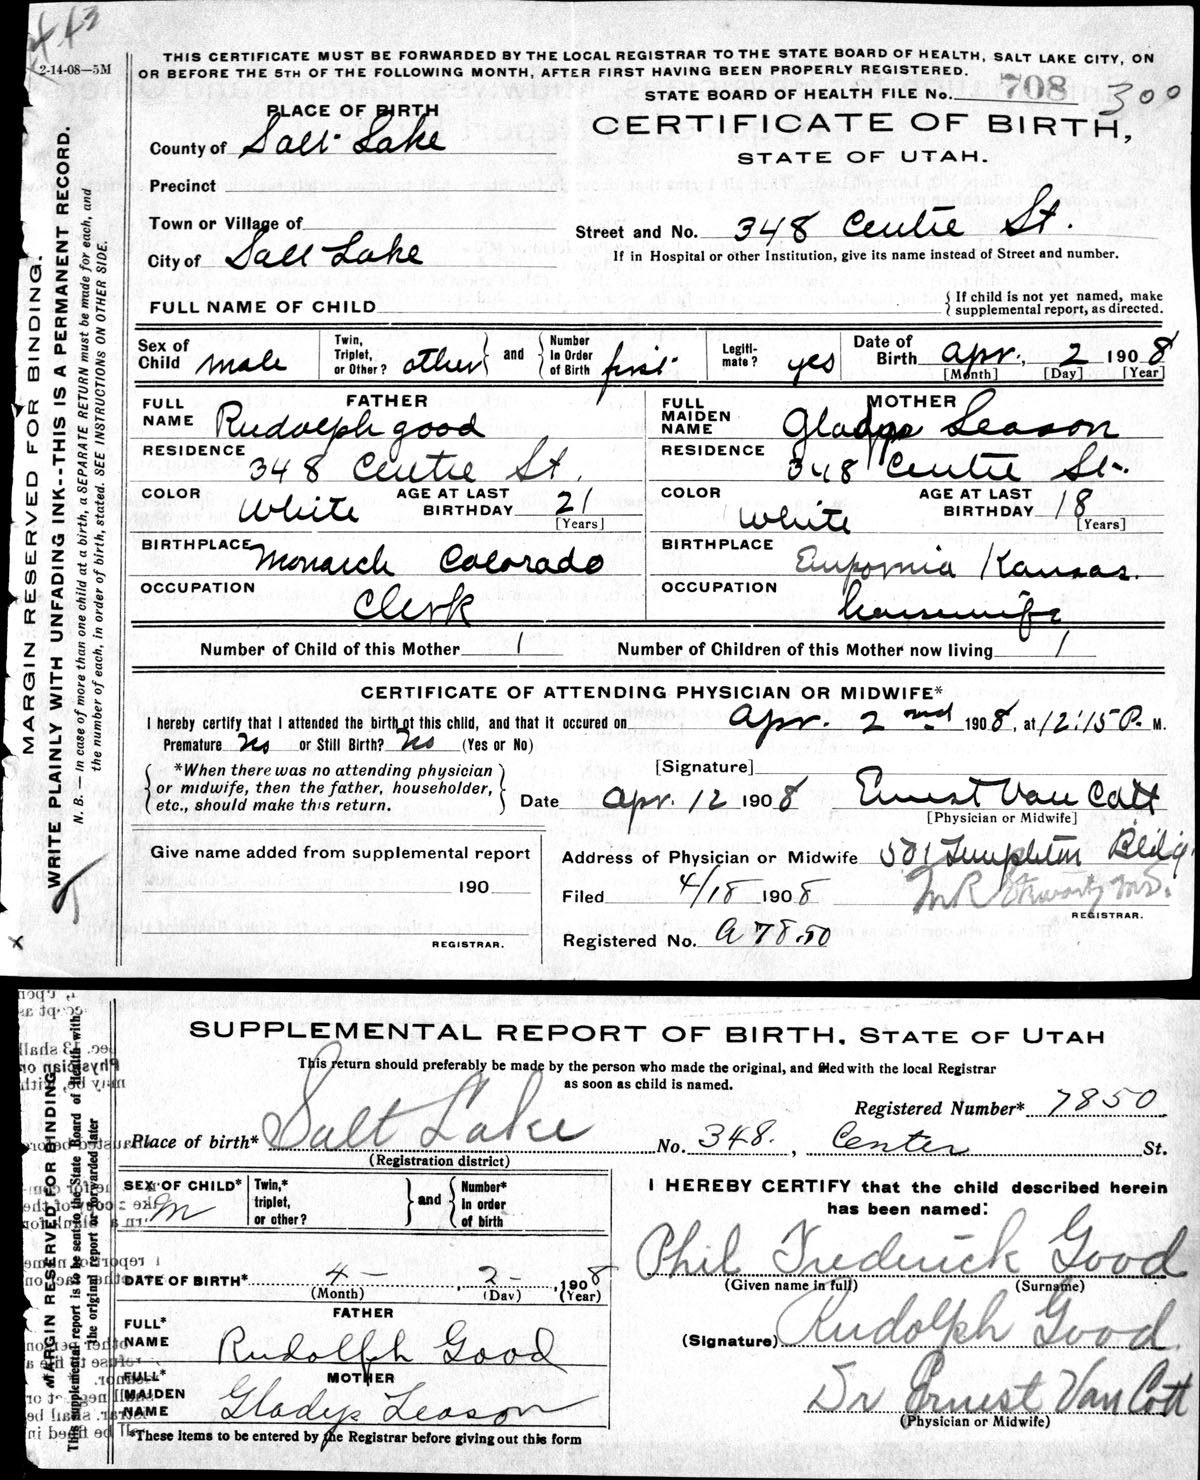 443
2-14-08—5M
THIS CERTIFICATE MUST BE FORWARDED BY THE LOCAL REGISTRAR TO THE STATE BOARD OF HEALTH, SALT LAKE CITY, ON
OR BEFORE THE 5TH OF THE FOLLOWING MONTH, AFTER FIRST HAVING BEEN PROPERLY REGISTERED.
STATE BOARD OF HEALTH FILE No. 708 300
PLACE OF BIRTH
CERTIFICATE OF BIRTH,
STATE OF UTAH.
County of Salt Lake
Precinct
Town or Village of
City of Salt Lake
Street and No. 348 Centre St.
If in Hospital or other Institution, give its name instead of Street and number.
FULL NAME OF CHILD
{If child is not yet named, make
supplemental report, as directed.
Sex of Child male
Twin, Triplet, or Other? other
and
Number In Order of Birth first
Legiti- mate? yes
Date of Birth Apr. 2 1908
[Month] [Day] [Year]
FATHER
FULL NAME Rudolph Good
RESIDENCE 348 Centre St.
COLOR White
AGE AT LAST BIRTHDAY 21 [Years]
BIRTHPLACE Monarch Colorado
OCCUPATION Clerk
MOTHER
FULL MAIDEN NAME Gladys Leason
RESIDENCE 348 Centre St.
COLOR White
AGE AT LAST BIRTHDAY 18 [Years]
BIRTHPLACE Kansas.
OCCUPATION housewife
Number of Child of this Mother 1 Number of Children of this Mother now living 1
CERTIFICATE OF ATTENDING PHYSICIAN OR MIDWIFE*
I hereby certify that I attended the birth of this child, and that it occured on Apr. 2nd 1908, at 12:15 P. M.
Premature No or Still Birth? No (Yes or No)
*When there was no attending physician
or midwife, then the father, householder,
etc., should make this return.
[Signature]
Date Apr. 12 1908 Ernest Van Cott
[Physician or Midwife]
Give name added from supplemental report
190
REGISTRAR.
Address of Physician or Midwife 501 Templeton Bldg.
Filed 4/18 1908
REGISTRAR.
Registered No. a 7850
MARGIN RESERVED FOR BINDING.
WRITE PLAINLY WITH UNFADING INK--THIS IS A PERMANENT RECORD.
N. B. — In case of more than one child at a birth, a SEPARATE RETURN must be made for each, and
the number of each, in order of birth, stated. SEE INSTRUCTIONS ON OTHER SIDE.
SUPPLEMENTAL REPORT OF BIRTH, STATE OF UTAH
This return should preferably be made by the person who made the original, and filed with the local Registrar
as soon as child is named.
Registered Number* 7850
Place of birth* Salt Lake No. 348. , Center St.
(Registration district)
SEX OF CHILD* M
Twin,* triplet, or other?
and
Number* in order of birth
I HEREBY CERTIFY that the child described herein
has been named:
Phil Frederick Good
(Given name in full) (Surname)
DATE OF BIRTH* 4 - , 2 - , 1908
(Month) (Day) (Year)
FATHER
FULL* NAME Rudolph Good
MOTHER
FULL* MAIDEN NAME Gladys Leason
(Signature) Rudolph Good
Dr Ernest Van Cott
(Physician or Midwife)
*These items to be entered by the Registrar before giving out this form
MARGIN RESERVED FOR BINDING
This supplemental report is to be sent to the State Board of Health with
the original report or forwarded later